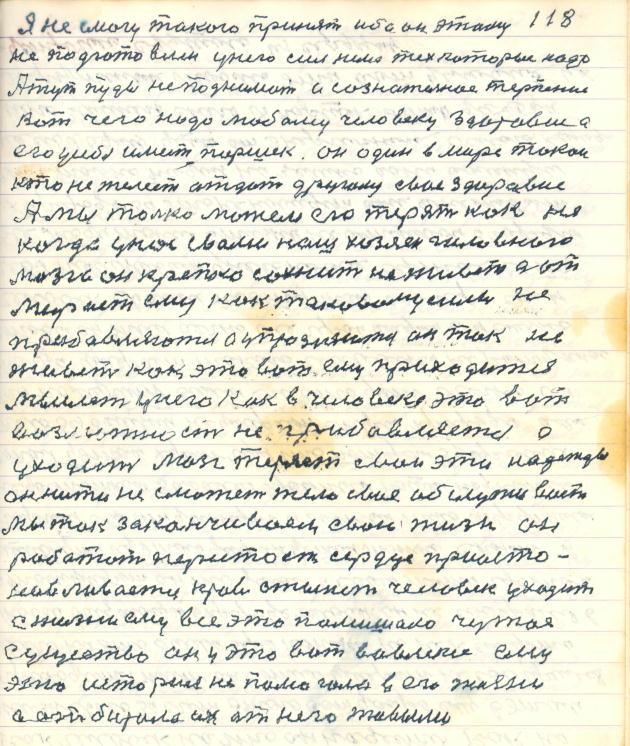 Я не смогу такого принят ибо он этому 118
не подготовлин у него сил нима тех которые надо
А тут пуды не поднимат а сознателное терпение
Вот чего надо любому человеку Здоровие а
его учебы имет паршек. он один в мире такой
кто не желеит отдат другому свое здоровие
А мы толко можем его терят как не
когда у нас свалы наш хозяен головного
мозга он крепко сохнит не живет а от
мырает ему как таковому силы не
прибавляются а он так не
живет как это вот ему приходится
мыслет у него как в человеке это вот
возможност не прибавляется а
уходит мозг теряет свои эти надежды
он нити не сможет тело свое обслуживат
мы так заканчиваем свою жизн он
работат перистост сердце приосто-
навливается кров стынет человек уходит
с жизни ему все это помишало чужое
существо он у это вот ему
это история не помогала в его жизни
а отбирала их от него